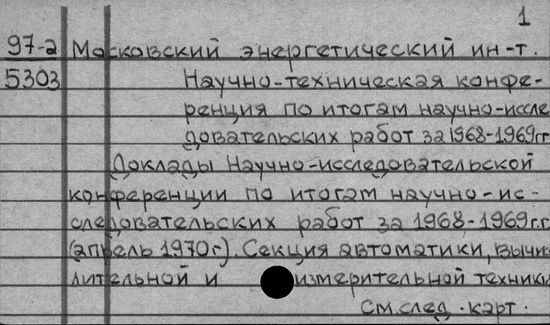 1
97-2 Московский энергетический ин-т.
5303 Научно-техническая конфе-
ренция по итогам научно-иссле
довательских работ за 1968-1969гг
Доклады Научно-исследовательской
конференции по итогам научно-ис-
следовательских работ за 1968-1969г.г.
(апрель 1970г). Секция автоматики, вычис
лительной и измерительной техники
См. след. карт.